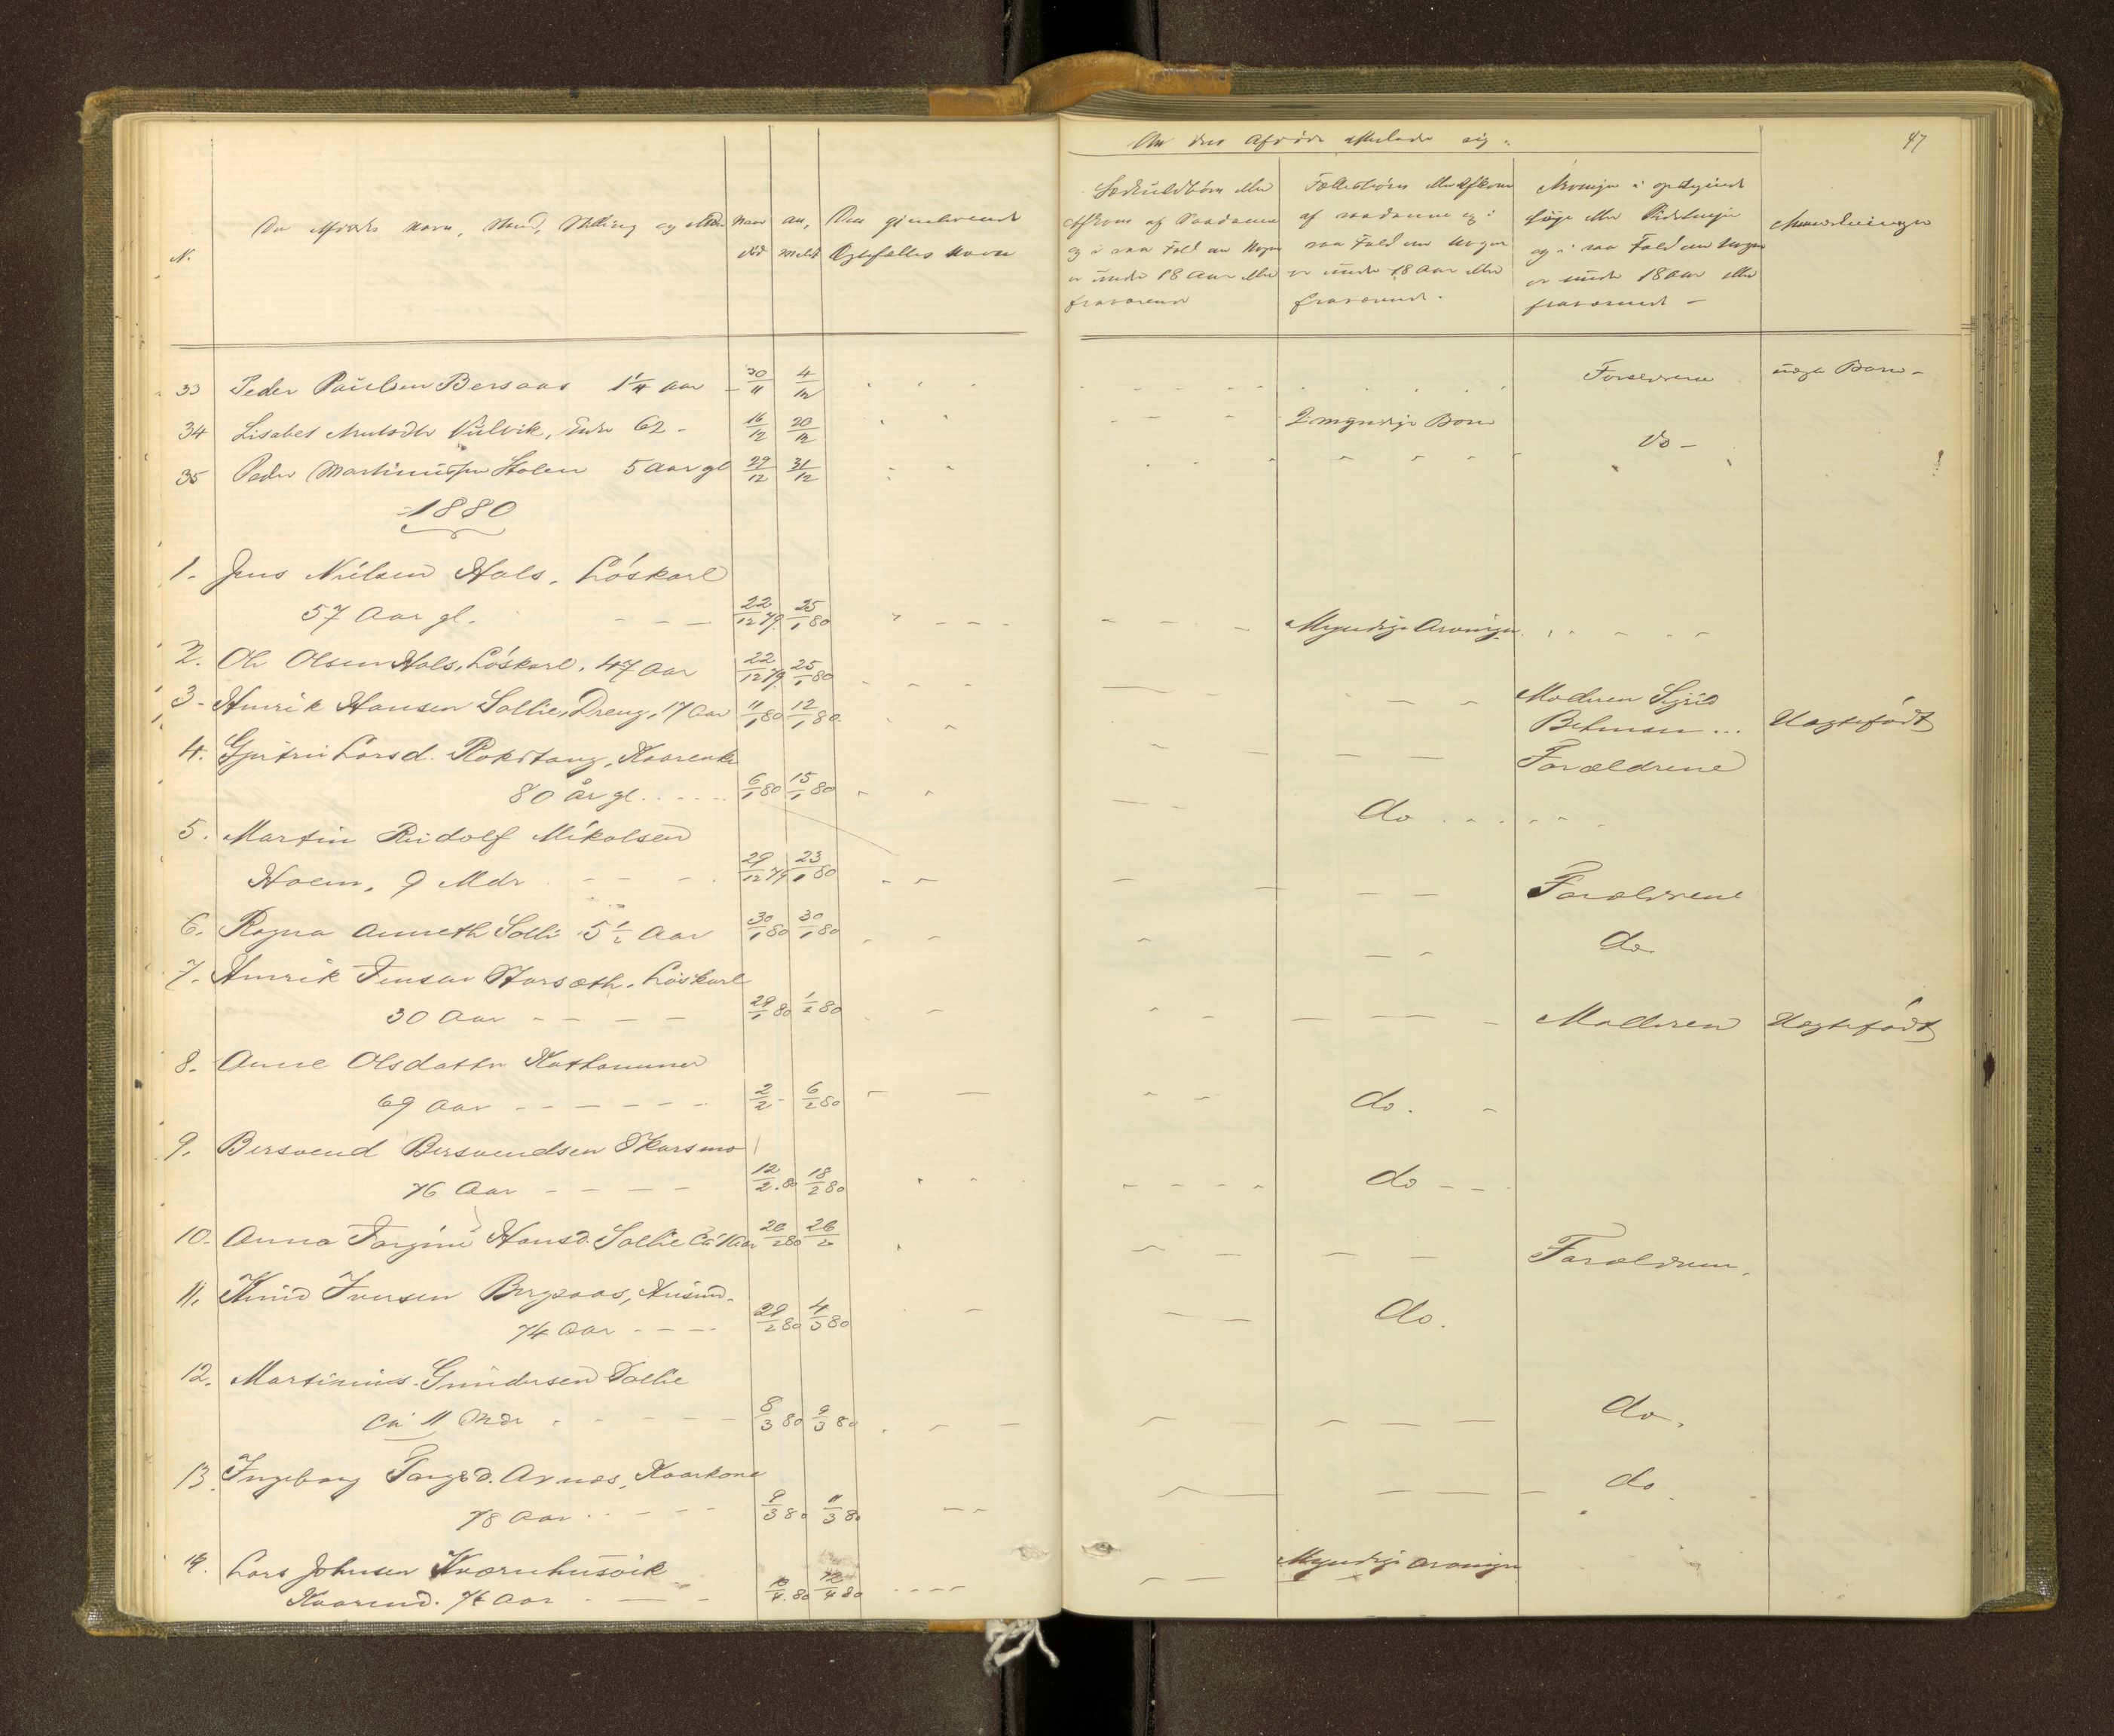 Har den Afdøde efterladt sig:
47
N.
Den Afdødes Navn, Stand, Stilling og Alder
Naar død
an, meldt
Den gjenlevende
Ægtefælles Navn
Særkuldbørn eller
Afkom af saadanne
og i saa Fald om Nogen
er under 18 Aar eller
fraværende
Fællesbørn eller Afkom
af saadanne og i
saa Fald om Nogen
er under 18 Aar eller
fraværende.
Arvinger i opstigende
Linje eller Sidelinjer
og i saa Fald om Nogen
er under 18 Aar eller
fraværende –
Anmærkninger
33 Peder Paulsen Bersaas 1 1/4 Aar – 30/11 4/12 Forældrene uægte Barn –
34 Lisabet Knutsdtr Kulvik, Enke 62 – 16/12 20/12 2 myndige Børn
35 Peder Martinussen Stolen 5 Aar gl 29/12 31/12 do –
1880
1. Jens Nilsen Hals, Löskarl
57 Aar gl. – – – 22/12 79. 25/1 80 Myndige Arvinger
2. Ole Olsen Hals, Löskarl, 47 Aar 22/12 79. 25/1 80
3. Henrik Hansen Sollie, Dreng, 17 Aar 11/1 80 12/1 80. Moderen Sigrid
Behman ... Uægtefödt
4. Gjertru Larsd. Rokstang, Kaarenke Forældrene
80 år gl. 6/1 80 15/1 80 do
5. Martin Rudolf Mikalsen
Hoem, 9 Mdr 29/12 79 23/1 80 Forældrene
6. Ragna Anneth Solli 5 1/2 Aar 30/1 80 30/1 80 do
7. Henrik Jensen Storsæth, Löskarl
30 Aar – – – – 29/1 80 1/2 80 Moderen Uægtefödt
8. Anne Olsdatter Kathammer
69 Aar – – – – – – 2/2 – 6/2 80 do.
9. Bersvend Bersvendsen Skarsmo
76 Aar – – – – 12/2 . 80 18/2 80 do – –
10. Anna Jorgine Hansd. Sollie 26/2 80 26/2 Forældrene.
11. Knud Iversen Bergsaas, Husmd.
74 Aar – – – 29/2 80 4/3 80 do.
12. Martinius Gundersen Sollie
Ca 11 Mdr 8/3 80 9/3 80 do.
13. Ingeborg Jorgsd. Arnæs, Kaarkone
78 Aar – – – 9/3 80 11/3 80 do
14. Lars Johnsen Kværnhusvik
Kaarmd. 76 Aar 10/4 . 80 12/4 80 Myndige Arvinger